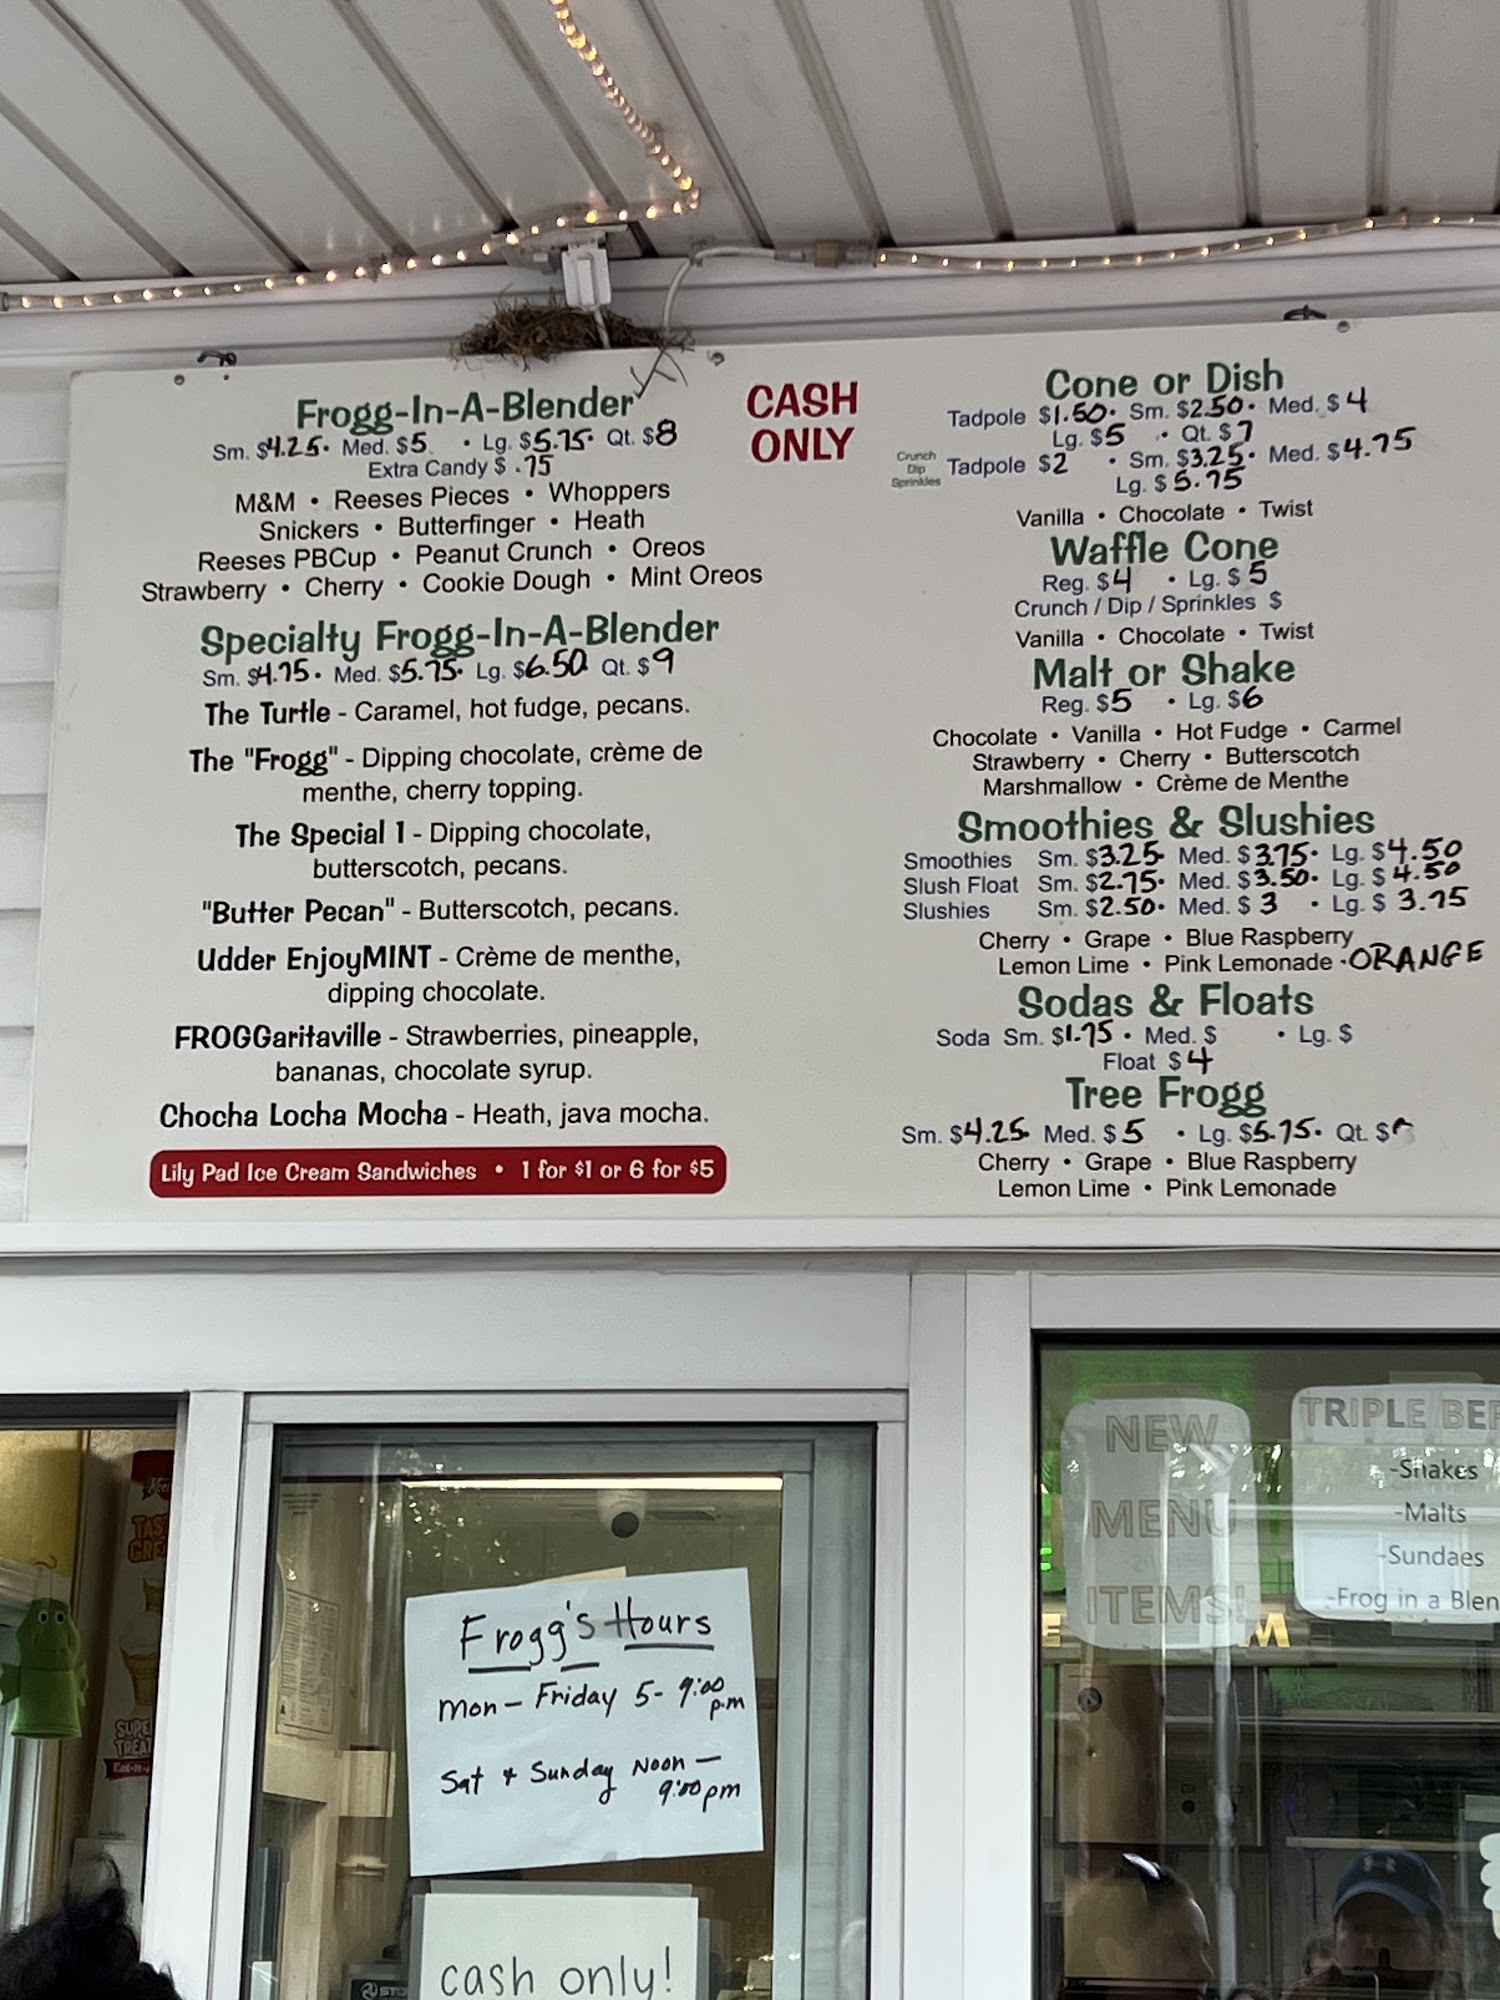 Frogg-In-A-Blender
Sm. $4.25 • Med. $5 • Lg. $5.75 • Qt. $8
Extra Candy $ .75
M&M • Reeses Pieces • Whoppers
Snickers • Butterfinger • Heath
Reeses PBCup • Peanut Crunch • Oreos
Strawberry • Cherry • Cookie Dough • Mint Oreos
Specialty Frogg-In-A-Blender
Sm. $4.75 • Med. $5.75 • Lg. $6.50 Qt. $9
The Turtle - Caramel, hot fudge, pecans.
The "Frogg" - Dipping chocolate, crème de
menthe, cherry topping.
The Special 1 - Dipping chocolate,
butterscotch, pecans.
"Butter Pecan" - Butterscotch, pecans.
Udder EnjoyMINT - Crème de menthe,
dipping chocolate.
FROGGaritaville - Strawberries, pineapple,
bananas, chocolate syrup.
Chocha Locha Mocha - Heath, java mocha.
Lily Pad Ice Cream Sandwiches • 1 for $1 or 6 for $5
CASH
ONLY
Cone or Dish
Tadpole $1.50 • Sm. $2.50 • Med. $4
Lg. $5 • Qt. $7
Crunch
Dip
Sprinkles
Tadpole $2 • Sm. $3.25 • Med. $4.75
Lg. $5.75
Vanilla • Chocolate • Twist
Waffle Cone
Reg. $4 • Lg. $5
Crunch / Dip / Sprinkles $
Vanilla • Chocolate • Twist
Malt or Shake
Reg. $5 • Lg. $6
Chocolate • Vanilla • Hot Fudge • Carmel
Strawberry • Cherry • Butterscotch
Marshmallow • Crème de Menthe
Smoothies & Slushies
Smoothies Sm. $3.25 Med. $3.75 • Lg. $4.50
Slush Float Sm. $2.75 • Med. $3.50 • Lg. $4.50
Slushies Sm. $2.50 • Med. $3 • Lg. $3.75
Cherry • Grape • Blue Raspberry
Lemon Lime • Pink Lemonade • ORANGE
Sodas & Floats
Soda Sm. $1.75 • Med. $ • Lg. $
Float $4
Tree Frogg
Sm. $4.25 Med. $5 • Lg. $5.75 • Qt. $
Cherry • Grape • Blue Raspberry
Lemon Lime • Pink Lemonade
Frogg's Hours
Mon - Friday 5 - 9:00
p.m
Sat & Sunday Noon -
9:00 pm
cash only!
NEW
MENU
ITEMS!
TRIPLE
-Shakes
-Malts
-Sundaes
-Frog in a